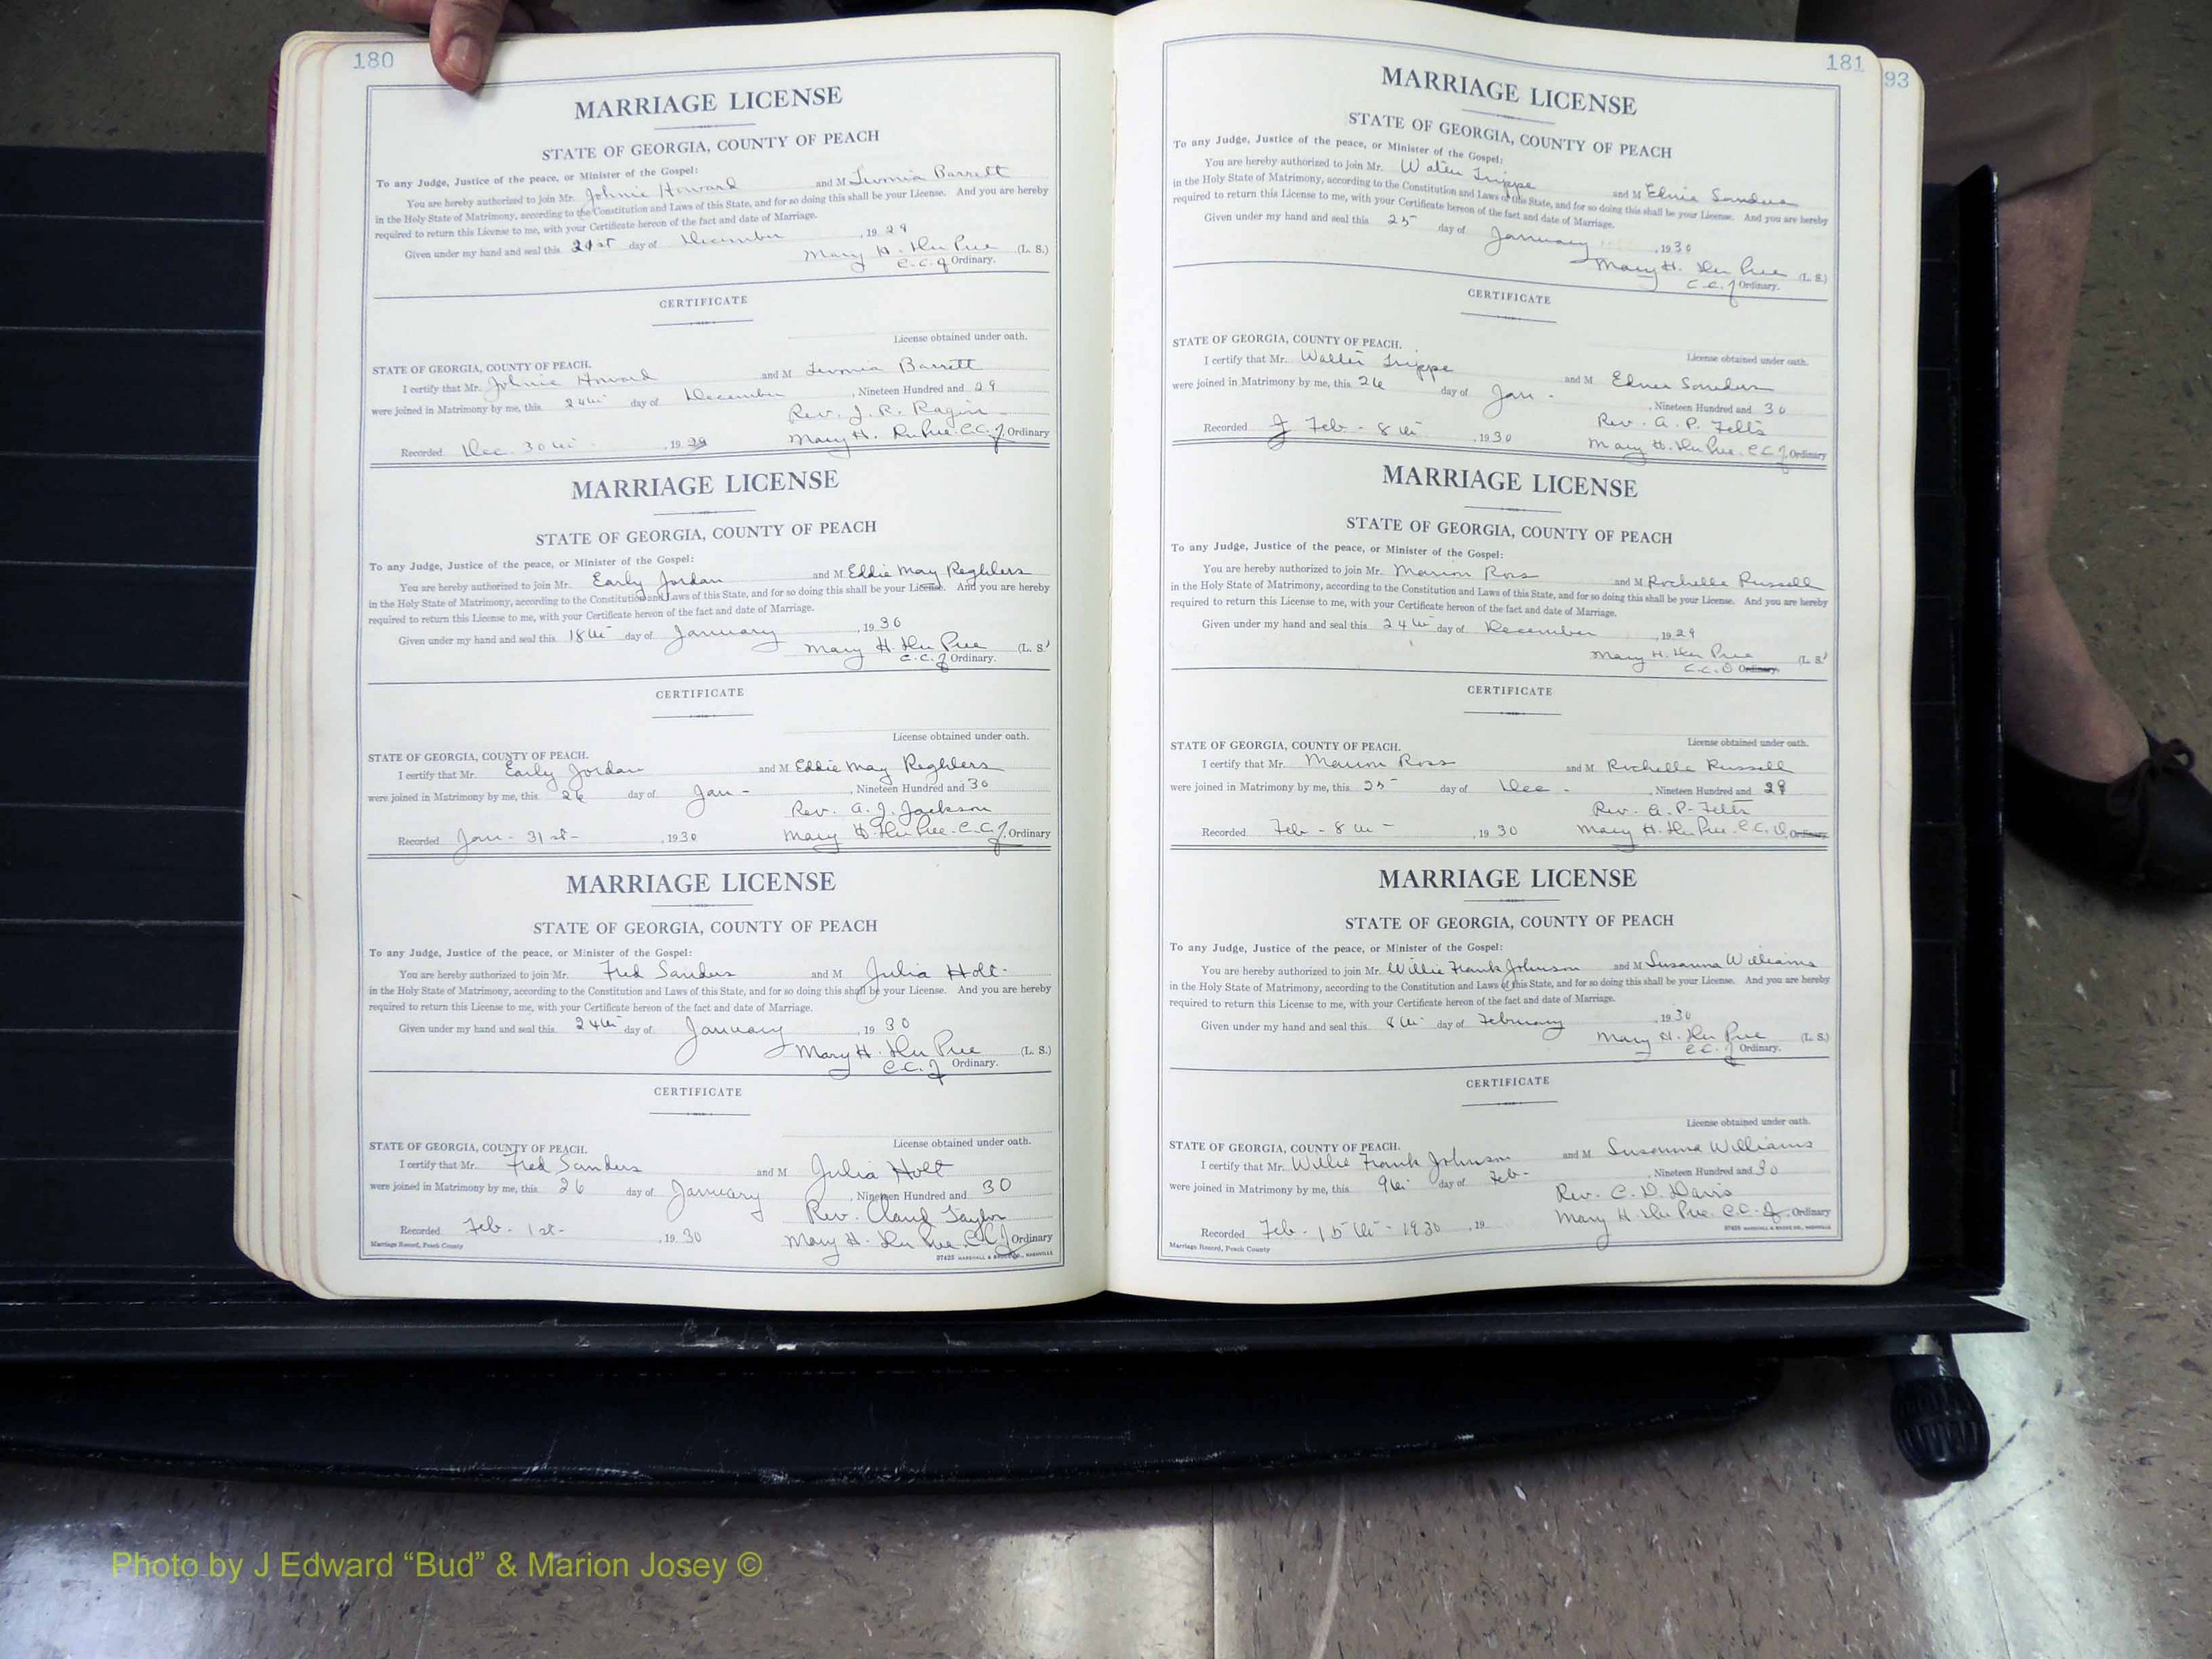 180
MARRIAGE LICENSE
STATE OF GEORGIA, COUNTY OF PEACH
To any Judge, Justice of the peace, or Minister of the Gospel:
You are hereby authorized to join Mr. Johnie Howard and M Barrett
in the Holy State of Matrimony, according to the Constitution and Laws of this State, and for so doing this shall be your License. And you are hereby
required to return this License to me, with your Certificate hereon of the fact and date of Marriage.
Given under my hand and seal this 21st day of December, 1929
Mary H. Du Pree (L. S.)
C.C.O Ordinary.
CERTIFICATE
License obtained under oath.
STATE OF GEORGIA, COUNTY OF PEACH.
I certify that Mr. Johnie Howard and M Barrett
were joined in Matrimony by me, this 24th day of December, Nineteen Hundred and 29
Rev. J. R. Ragin
Recorded Dec. 30th - , 1929 Mary H. DuPree. C.C.O, Ordinary
MARRIAGE LICENSE
STATE OF GEORGIA, COUNTY OF PEACH
To any Judge, Justice of the peace, or Minister of the Gospel:
You are hereby authorized to join Mr. Early Jordan and M Eddie May Reghlers
in the Holy State of Matrimony, according to the Constitution and Laws of this State, and for so doing this shall be your License. And you are hereby
required to return this License to me, with your Certificate hereon of the fact and date of Marriage.
Given under my hand and seal this 18th day of January, 1930
Mary H. Du Pree (L. S.)
C.C.O Ordinary.
CERTIFICATE
License obtained under oath.
STATE OF GEORGIA, COUNTY OF PEACH.
I certify that Mr. Early Jordan and M Eddie May Reghlers
were joined in Matrimony by me, this 26 day of Jan -, Nineteen Hundred and 30
Rev. A. J. Jackson
Recorded Jan - 31st -, 1930 Mary H. Du Pree. C.C.O, Ordinary
MARRIAGE LICENSE
STATE OF GEORGIA, COUNTY OF PEACH
To any Judge, Justice of the peace, or Minister of the Gospel:
You are hereby authorized to join Mr. Fred Sanders and M Julia Holt
in the Holy State of Matrimony, according to the Constitution and Laws of this State, and for so doing this shall be your License. And you are hereby
required to return this License to me, with your Certificate hereon of the fact and date of Marriage.
Given under my hand and seal this 24th day of January, 1930
Mary H. Du Pree (L. S.)
C.C.O Ordinary.
CERTIFICATE
License obtained under oath.
STATE OF GEORGIA, COUNTY OF PEACH.
I certify that Mr. Fred Sanders and M Julia Holt
were joined in Matrimony by me, this 26 day of January, Nineteen Hundred and 30
Rev. Claud Taylor
Recorded Feb - 1st -, 1930 Mary H. Du Pree. C.C.O Ordinary
Marriage Record, Peach County
181
93
MARRIAGE LICENSE
STATE OF GEORGIA, COUNTY OF PEACH
To any Judge, Justice of the peace, or Minister of the Gospel:
You are hereby authorized to join Mr. Walter Trippe and M Sanders
in the Holy State of Matrimony, according to the Constitution and Laws of this State, and for so doing this shall be your License. And you are hereby
required to return this License to me, with your Certificate hereon of the fact and date of Marriage.
Given under my hand and seal this 25 day of January, 1930
Mary H. Du Pree (L. S.)
C.C.O Ordinary.
CERTIFICATE
License obtained under oath.
STATE OF GEORGIA, COUNTY OF PEACH.
I certify that Mr. Walter Trippe and M Sanders
were joined in Matrimony by me, this 26 day of Jan -, Nineteen Hundred and 30
Rev. A. P. Felts
Recorded Feb - 8th, 1930 Mary H. Du Pree. C.C.O, Ordinary
MARRIAGE LICENSE
STATE OF GEORGIA, COUNTY OF PEACH
To any Judge, Justice of the peace, or Minister of the Gospel:
You are hereby authorized to join Mr. Marion Ross and M Rochelle Russell
in the Holy State of Matrimony, according to the Constitution and Laws of this State, and for so doing this shall be your License. And you are hereby
required to return this License to me, with your Certificate hereon of the fact and date of Marriage.
Given under my hand and seal this 24th day of December, 1929
Mary H. Du Pree (L. S.)
C.C.O Ordinary.
CERTIFICATE
License obtained under oath.
STATE OF GEORGIA, COUNTY OF PEACH.
I certify that Mr. Marion Ross and M Rochelle Russell
were joined in Matrimony by me, this 25 day of Dec -, Nineteen Hundred and 29
Rev. A. P. Felts
Recorded Feb - 8th -, 1930 Mary H. Du Pree. C.C.O, Ordinary
MARRIAGE LICENSE
STATE OF GEORGIA, COUNTY OF PEACH
To any Judge, Justice of the peace, or Minister of the Gospel:
You are hereby authorized to join Mr. Willie Frank Johnson and M Susanna Williams
in the Holy State of Matrimony, according to the Constitution and Laws of this State, and for so doing this shall be your License. And you are hereby
required to return this License to me, with your Certificate hereon of the fact and date of Marriage.
Given under my hand and seal this 8th day of February, 1930
Mary H. Du Pree (L. S.)
C.C.O Ordinary.
CERTIFICATE
License obtained under oath.
STATE OF GEORGIA, COUNTY OF PEACH.
I certify that Mr. Willie Frank Johnson and M Susanna Williams
were joined in Matrimony by me, this 9th day of Feb -, Nineteen Hundred and 30
Rev. C. D. Davis
Recorded Feb - 15th - 1930, 19 Mary H. Du Pree. C.C.O, Ordinary
Marriage Record, Peach County
Photo by J Edward “Bud” & Marion Josey ©